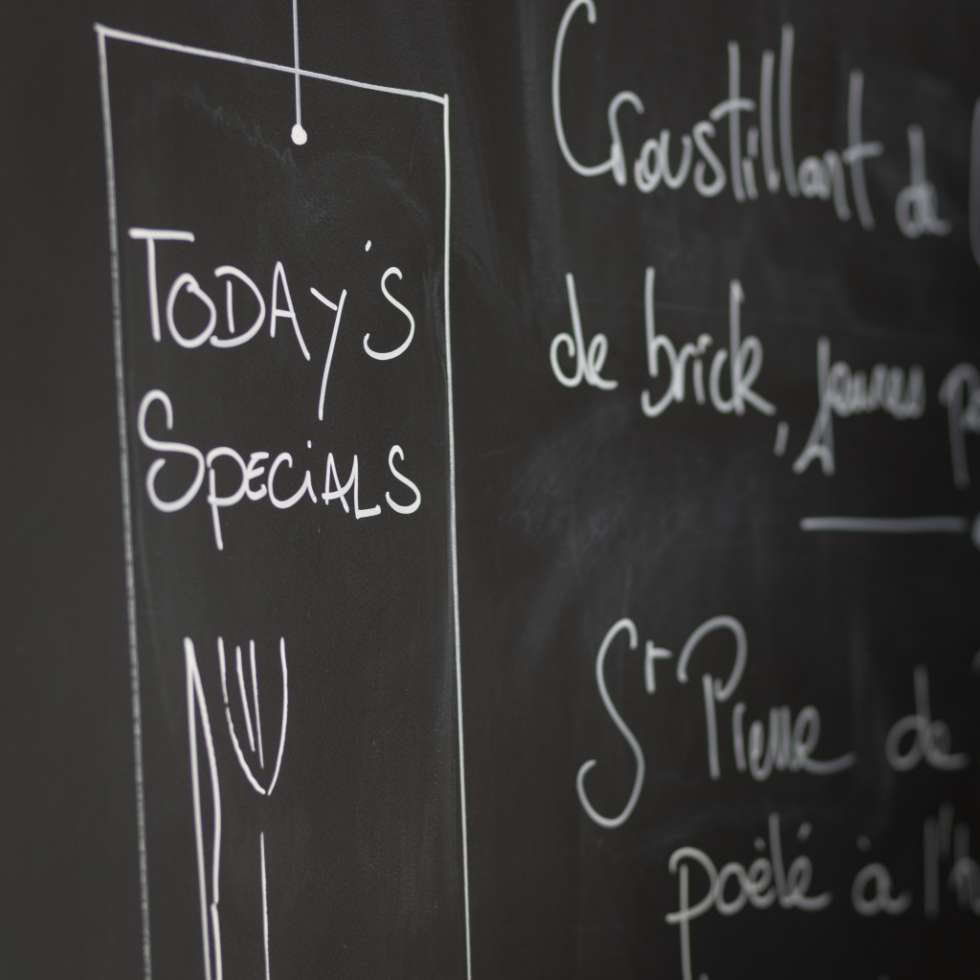 TODAY'S
SPECIALS
Croustillant de
de brick, jeunes
Sr Pierre de
poêlé à l'h